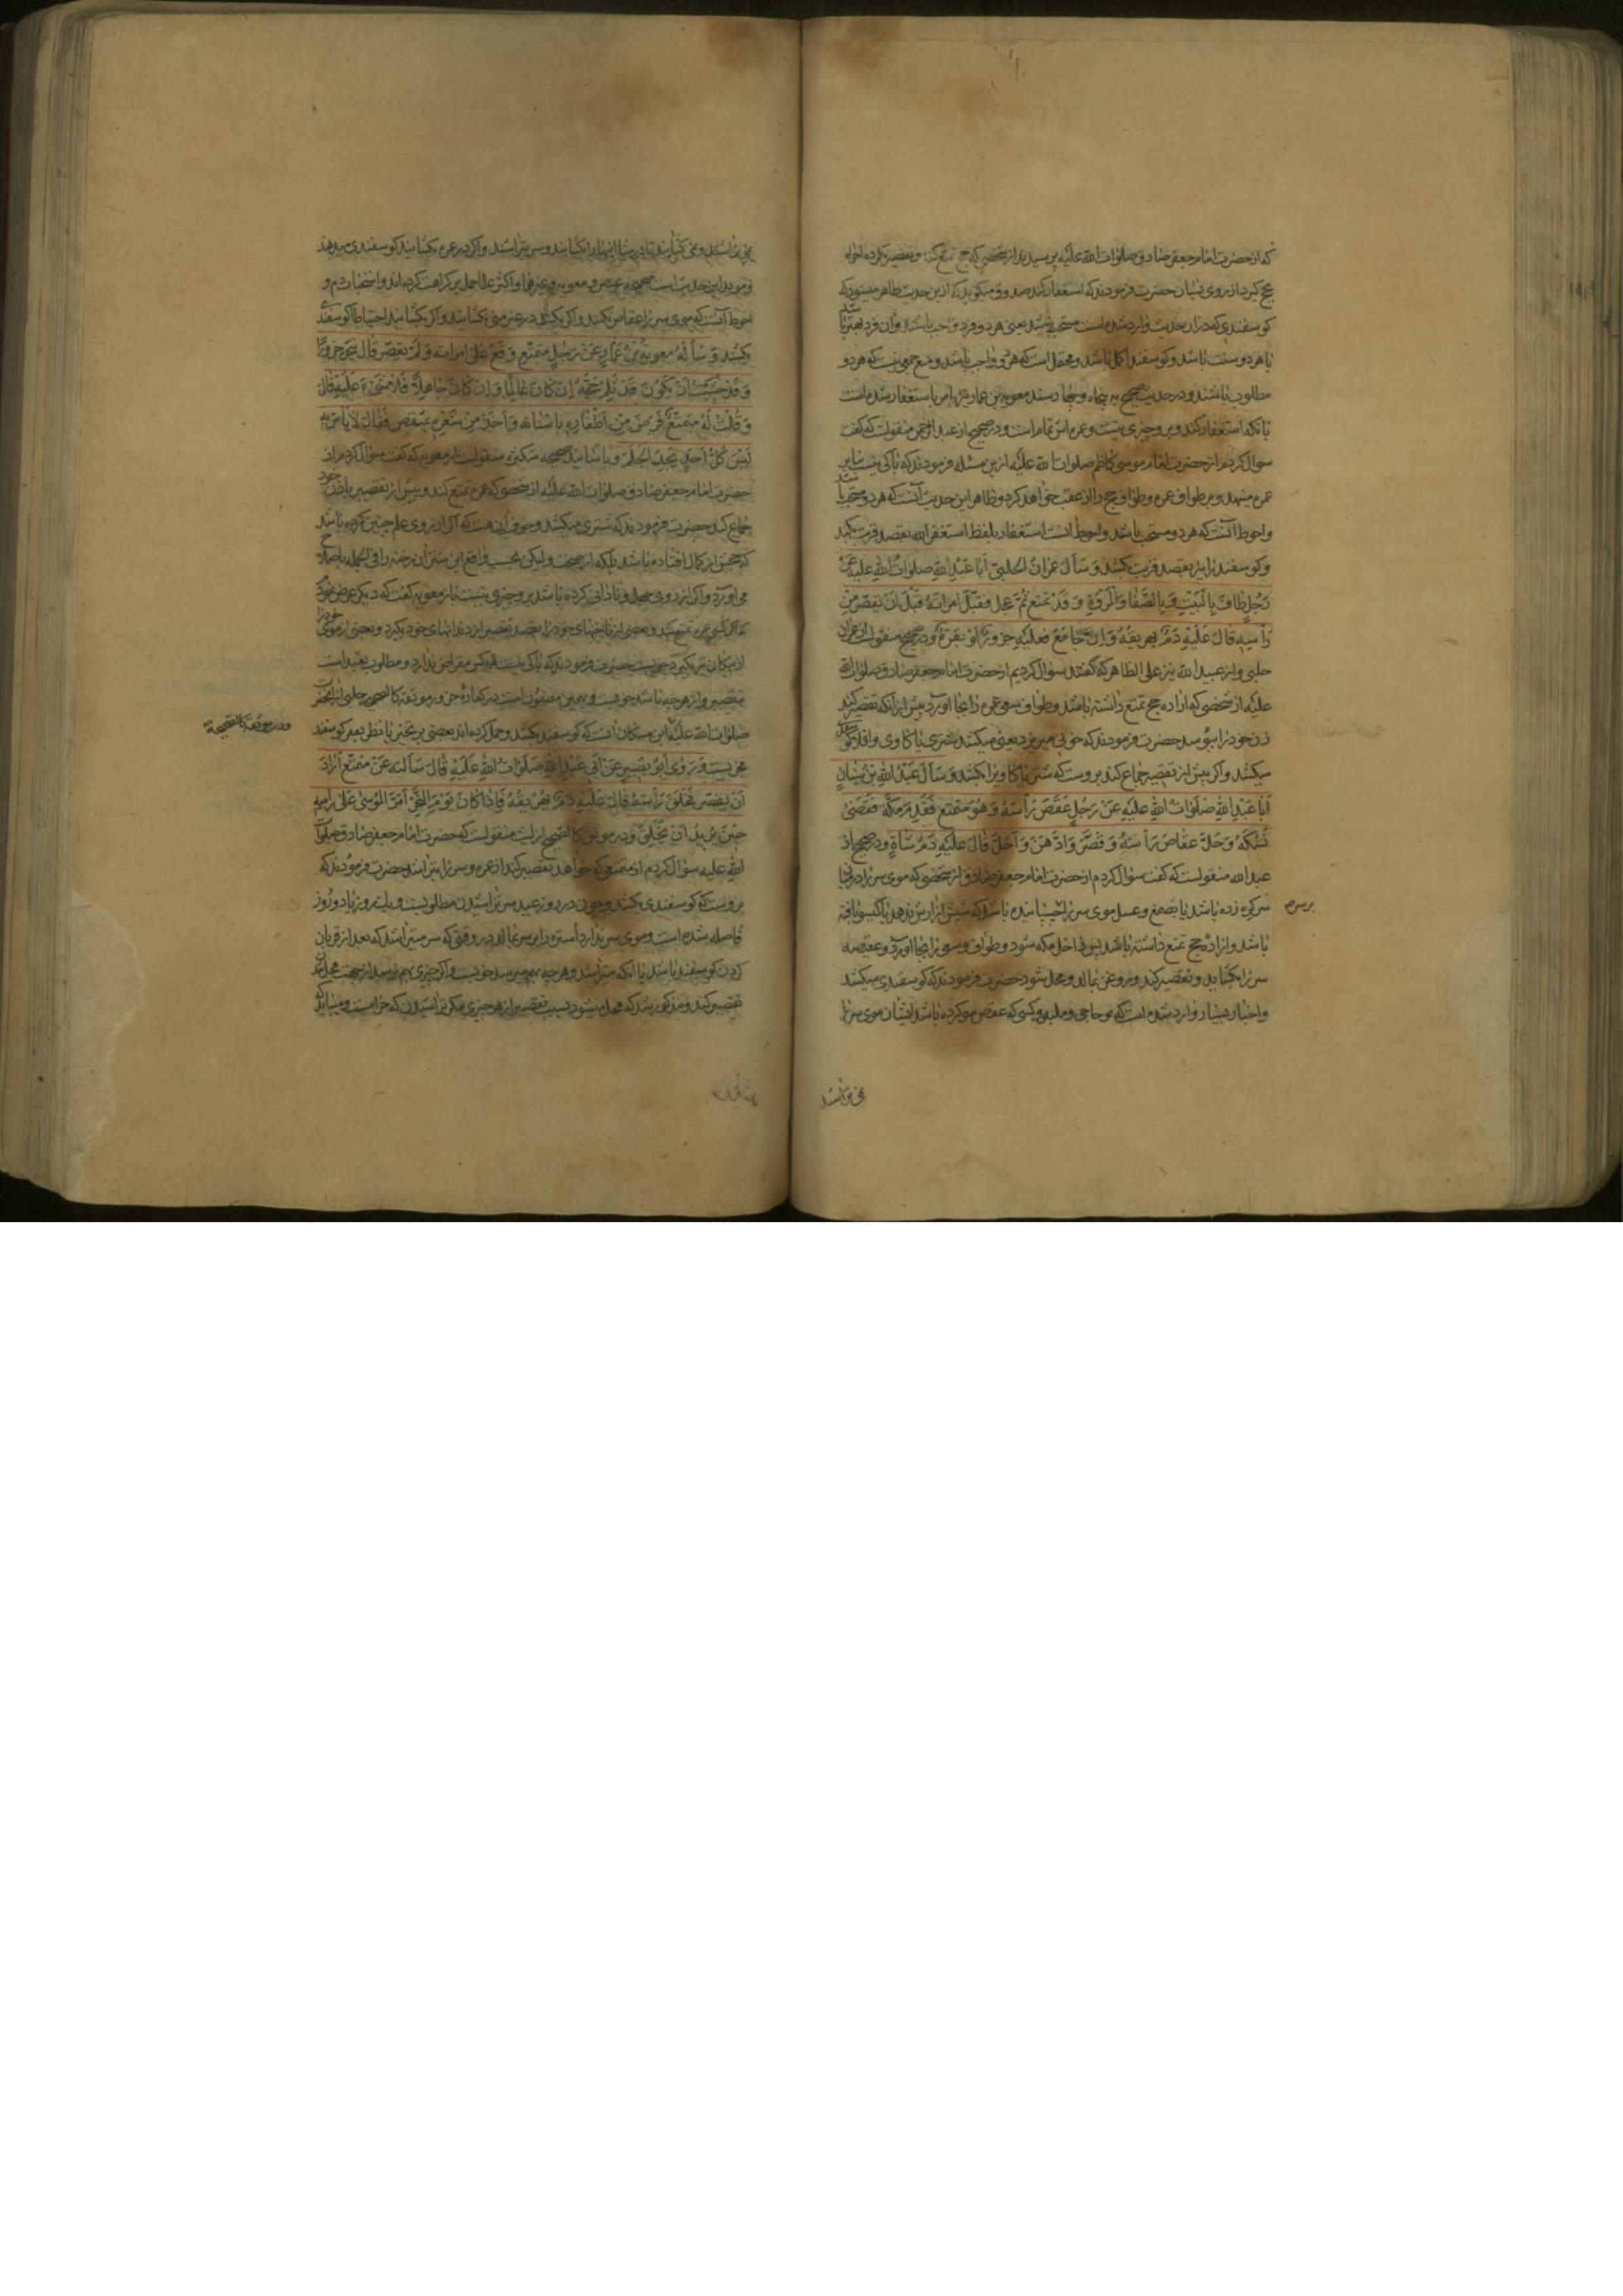 که از حضرت امام جعفر صادق صلوات الله علیه پرسیدند از شخصی که حج تمتع کند و تقصیر نکرده احرام
بحج گیرد از روی نسیان حضرت فرمودند که استغفار کند صدوق میکوید که ازین حدیث ظاهر میشود که
کوسفندی که در ان حدیث وارد شده است مستحب باشد یعنی هر دو فرد واجب باشند و ان فرد بهتر باشد یا
یا هر دو سنت باشد و کوسفند اکمل باشد و محتمل است که هر دو واجب باشد و منع جمع نیست که هر دو
مطلوب باشند و در حدیث صحیح معویة بن عمار نیز امر باستغفار شده است
بانکه استغفار کند و برو چیزی نیست و عمره اش تمام است و در صحیح از عبد الرحمن منقولست که کفت
سؤال کردم از حضرت امام موسی کاظم صلوات الله علیه ازین مسئله فرمودند که باکی نیست بنا بر
عمره مینهد و طواف عمره و طواف حج را از عقب خواهد کرد و ظاهر این حدیث آنست که هر دو مستحب باشد
و احوط آنست که هر دو مستحب باشد و احوط انست استغفار بلفظ استغفر الله بقصد قربت بکند
و کوسفند را نیز بقصد قربت بکشد وَ سَأَلَ عِمْرَانُ الحَلَبِيُّ أَبَا عَبْدِ اللهِ صلواتُ اللهِ علیه عَنْ
رَجُلٍ طَافَ بِالْبَيْتِ وَ بِالصَّفَا وَالْمَرْوَةِ وَ قَدْ تَمَتَّعَ ثُمَّ عَجِلَ فَقَبَّلَ امْرَأَتَهُ قَبْلَ اَنْ يُقَصِّرَ مِنْ
رَأْسِهِ قَالَ عَلَيْهِ دَمٌ يُهَرِيقُهُ وَ اِنْ جَامَعَ فَعَلَيْهِ جَزُورٌ أَوْ بَقَرَةٌ و در صحیح منقولست از عمران
حلبی و از عبید الله نیز علی الظاهر که کفتند سؤال کردیم از حضرت امام جعفر صادق صلوات الله
علیه از شخصی که اراده حج تمتع داشته باشد و طواف و سعی عمره را بجا اورد پیش از انکه تقصیر کند
زن خود را ببوسد حضرت فرمودند که خونی میریزد یعنی میکشد شتری یا کاوی و اقلا کوسفندی
میکشد و اکر پیش از تقصیر جماع کند بروست که شتر یا کاو یرا بکشد وَ سَأَلَ عَبْدُ اللهِ بْنُ سِنَانٍ
اَبَا عَبْدِ اللهِ صَلَوَاتُ اللهِ عَلَيْهِ عَنْ رَجُلٍ عَقَصَ رَأْسَهُ وَ هُوَ مُتَمَتِّعٌ فَقَدِمَ مَكَّةَ فَقَضَى
نُسُكَهُ وَ حَلَّ عِقَاصَ رَأْسِهِ وَ قَصَّرَ وَ ادَّهَنَ وَ أَحَلَّ قَالَ عَلَيْهِ دَمُ شَاةٍ و در صحیح از
عبد الله منقولست که کفت سؤال کردم از حضرت امام جعفر صادق از شخصی که موی سر را در میان
سر کره زده باشد یا بصمغ و عسل موی سر را چسبانیده باشد که شپش ازارش ندهد یا کیسو بافته
برسرم
باشد و اراده حج تمتع داشته باشد پس داخل مکه شود و طواف و سعی را بجا اورد و عقیصه
سر را بکشاید و تقصیر کند و روغن بمالد و محل شود حضرت فرمودند که کوسفندی میکشد
و اخبار بسیار وارد شده است که نوحاجی و ملبد و کسی که عقص مو کرده باشد ایشان موی سر را
می تراشند
می تراشند و نمی کشایند تا در منا انها را بکشایند و سر بتراشند و اکر در عمره بکشایند کوسفندی میدهند
و مؤید این حدیث است صحیحه عیص و معویه و غیر هما و اکثر علما حمل بر کراهت کرده اند و استحباب دم و
احوط آنست که موی سر را عقاص نکنند و اکر بکنند در غیر منی نکشایند و اکر بکشایند احتیاطا کوسفندی
بکشند وَ سَأَلَهُ مُعويةُ بْنُ عَمَّارٍ عَنْ رَجُلٍ مُتَمَتِّعٍ وَقَعَ عَلَى امْرَأَتِهِ وَ لَمْ يُقَصِّرْ قَالَ يَنْحَرُ جَزُورًا
وَ قَدْ خَشِيتُ أَنْ يَكُونَ قَدْ ثَلَمَ حَجَّهُ إِنْ كَانَ عَالِمًا وَ اِنْ كَانَ جَاهِلًا فَلَا شَيْءَ عَلَيْهِ قَالَ
وَ قُلْتُ لَهُ مُتَمَتِّعٌ قَرَضَ مِنْ أَظْفَارِهِ بِاَسْنَانِهِ وَ اَخَذَ مِنْ شَعْرِهِ بِمِشْقَصٍ فَقَالَ لَا بَأْسَ بِهِ
لَيْسَ كُلُّ أَحَدٍ يَجِدُ الْجَلَمَ و باسانید صحیحه متکثره منقولست از معویه که کفت سؤال کردم از
حضرت امام جعفر صادق صلوات الله علیه از شخصی که عمره تمتع کند و پیش از تقصیر با زن خود
جماع کند حضرت فرمودند که شتری میکشد و خوف ان هست که اکر از روی علم چنین کرده باشد
که حجش از کمال افتاده باشد بلکه از صحت ولیکن بحسب واقع این شتر ان رخنه را فی الجمله باصلاح
می اورد و اکر از روی جهل و نادانی کرده باشد برو چیزی نیست باز معویه کفت که دیکر عرض نمودم
که اکر کسی عمره تمتع کند و بعضی از ناخنهای خود را بقصد تقصیر از دندانهای خود بکیرد و بعضی از موی خود را
از پیکان تیر بکیرد چونست حضرت فرمودند که باکی نیست هر کس مقراض ندارد و مطلوب بقید است
بتقصیر و از هر چه باشد خوبست و بهمین مضمونست در کفاره جزور موثقه کالصحیح حلبی از انحضرت
صلوات الله علیه
و در موثقه کالصحیحه
نمی نیست وَ رَوَى اَبُو بَصِيرٍ عَنْ أَبِي عَبْدِ اللهِ صَلَوَاتُ اللهِ عَلَيْهِ قَالَ سَأَلْتُهُ عَنْ مُتَمَتِّعٍ أَرَادَ
اَنْ يُقَصِّرَ فَحَلَقَ رَأْسَهُ قَالَ عَلَيْهِ دَمٌ يُهَرِيقُهُ فَاِذَا كَانَ يَوْمُ النَّحْرِ أَمَرَّ الْمُوسَى عَلَى رَأْسِهِ
حِينَ يُرِيدُ أَنْ يَحْلِقَ و در موثق کالصحیح از لیث منقولست که حضرت امام جعفر صادق صلوات
الله علیه سؤال کردم از متمتعی که خواهد تقصیر کند از عمره و سر را بتراشد حضرت فرمودند که
بروست که کوسفندی بکشد و چون در روز عید سر تراشیدن مطلوبست
فاصله شده است و موی سر ندارد استره را بر سر بمالد در وقتی که سر میتراشند که بعد از قربان
کردن کوسفند باشد یا انکه متراشد و هر چه بهم رسد خوبست و اکر چیزی بهم نرسد از جهت محل شدن
تقصیر کند و مذکور شد که محل میشود بسبب تقصیر از هر چیزی مکر تراشیدن که حرامست